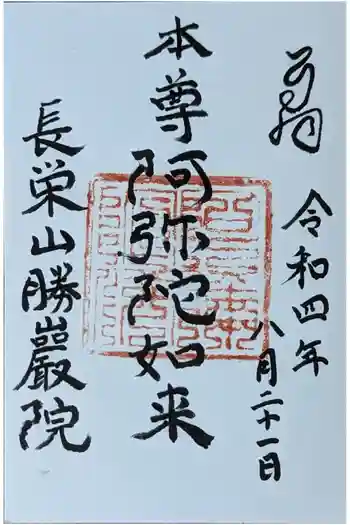 奉拝
令和四年
八月二十一日
本尊阿弥陀如来
長栄山勝巖院